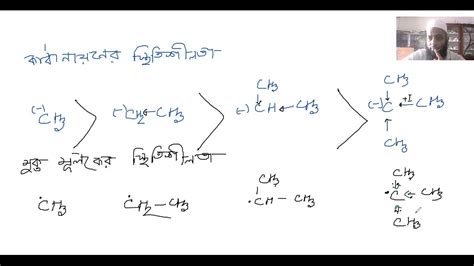 কার্বানায়নের স্থিতিশীলতা
(-)CH3 > (-)CH2←CH3 > CH3 (-)CH←CH3 > CH3 (-)C +I CH3 CH3
মুক্ত মূলকের স্থিতিশীলতা
•CH3 •CH2-CH3 CH3 •CH-CH3 CH3 •C←CH3 CH3